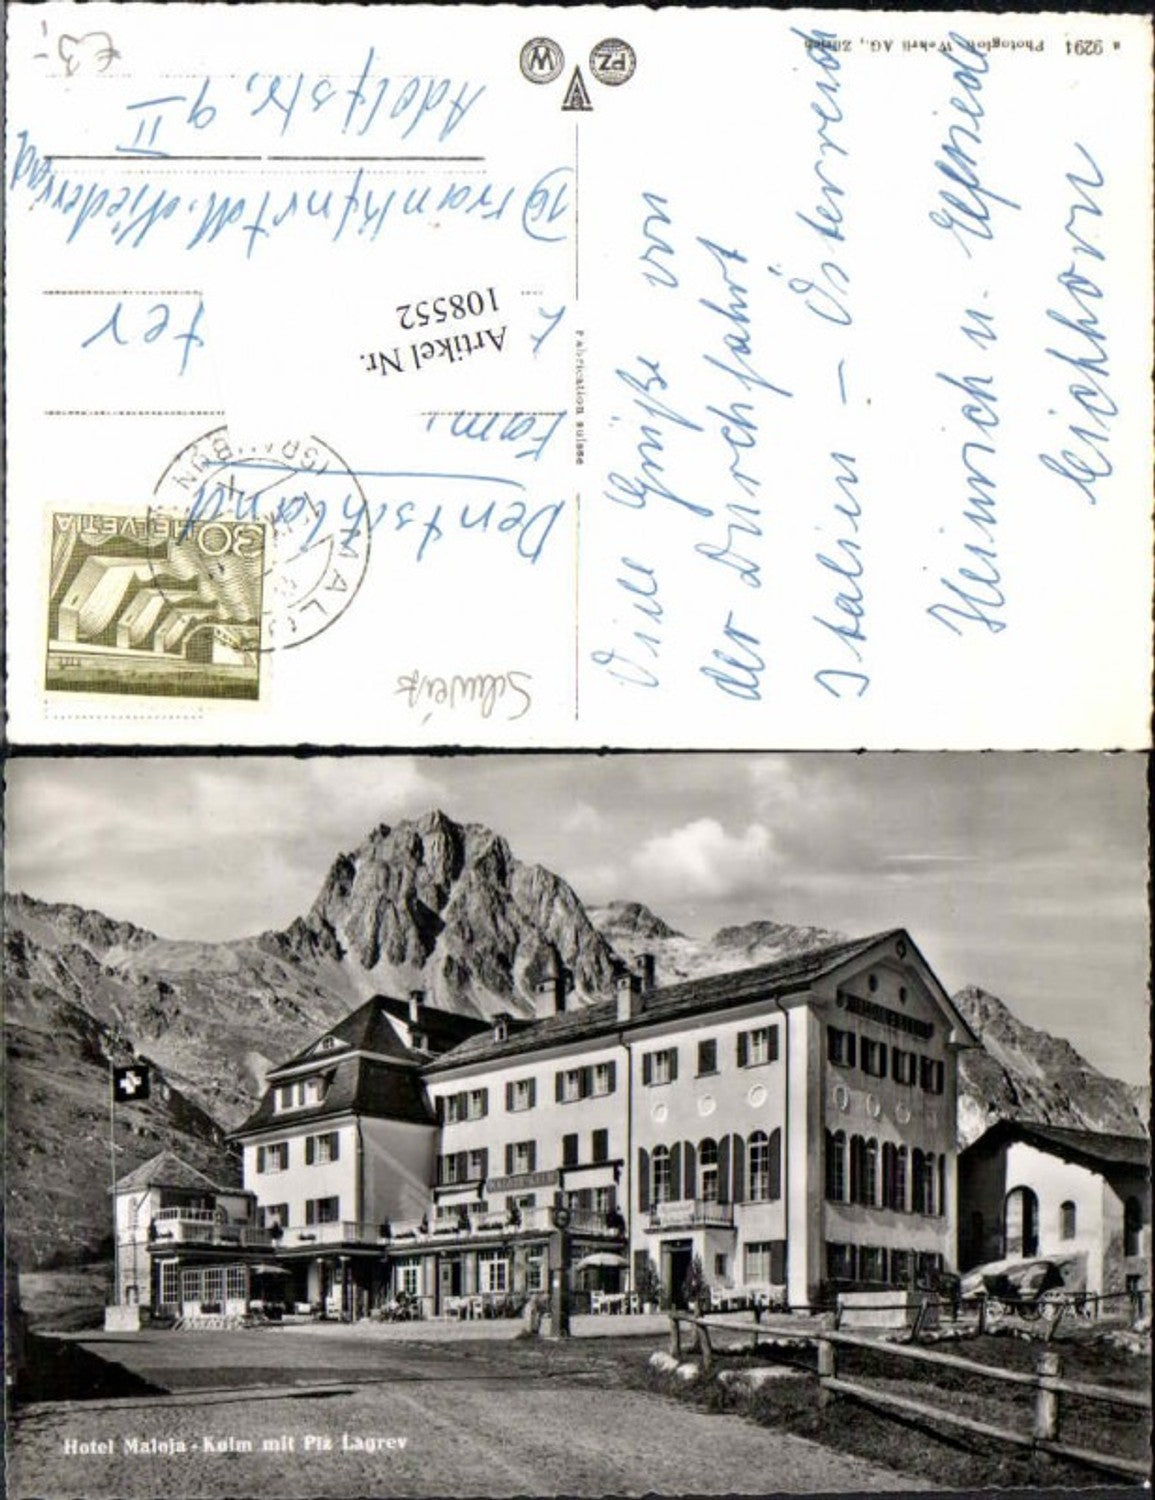 a 9291 Photoglob-Wehrli AG., Zürich
PZ
W
Fabrication suisse
Viele Grüße von
der Durchfahrt
Italien – Österreich
Heinrich u. Elfriede
Eichhorn
Schweiz
30 HELVETIA
MALOJA
Deutschland
Fam.
ter
Artikel Nr.
108552
16) Frankfurt M. Niederrad
Adolfstr. 9 II
€ 3,-
Hotel Maloja-Kulm mit Piz Lagrev